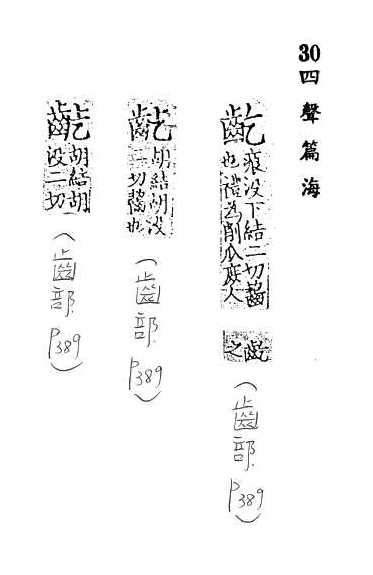 30 四聲篇海
齕
痕没下結二切齧
也禮為削瓜庶人
齕
之
(齒部 P389)
齕
胡結胡没
二切齧也
(齒部 P389)
胡結胡
没二切
(齒部 P389)